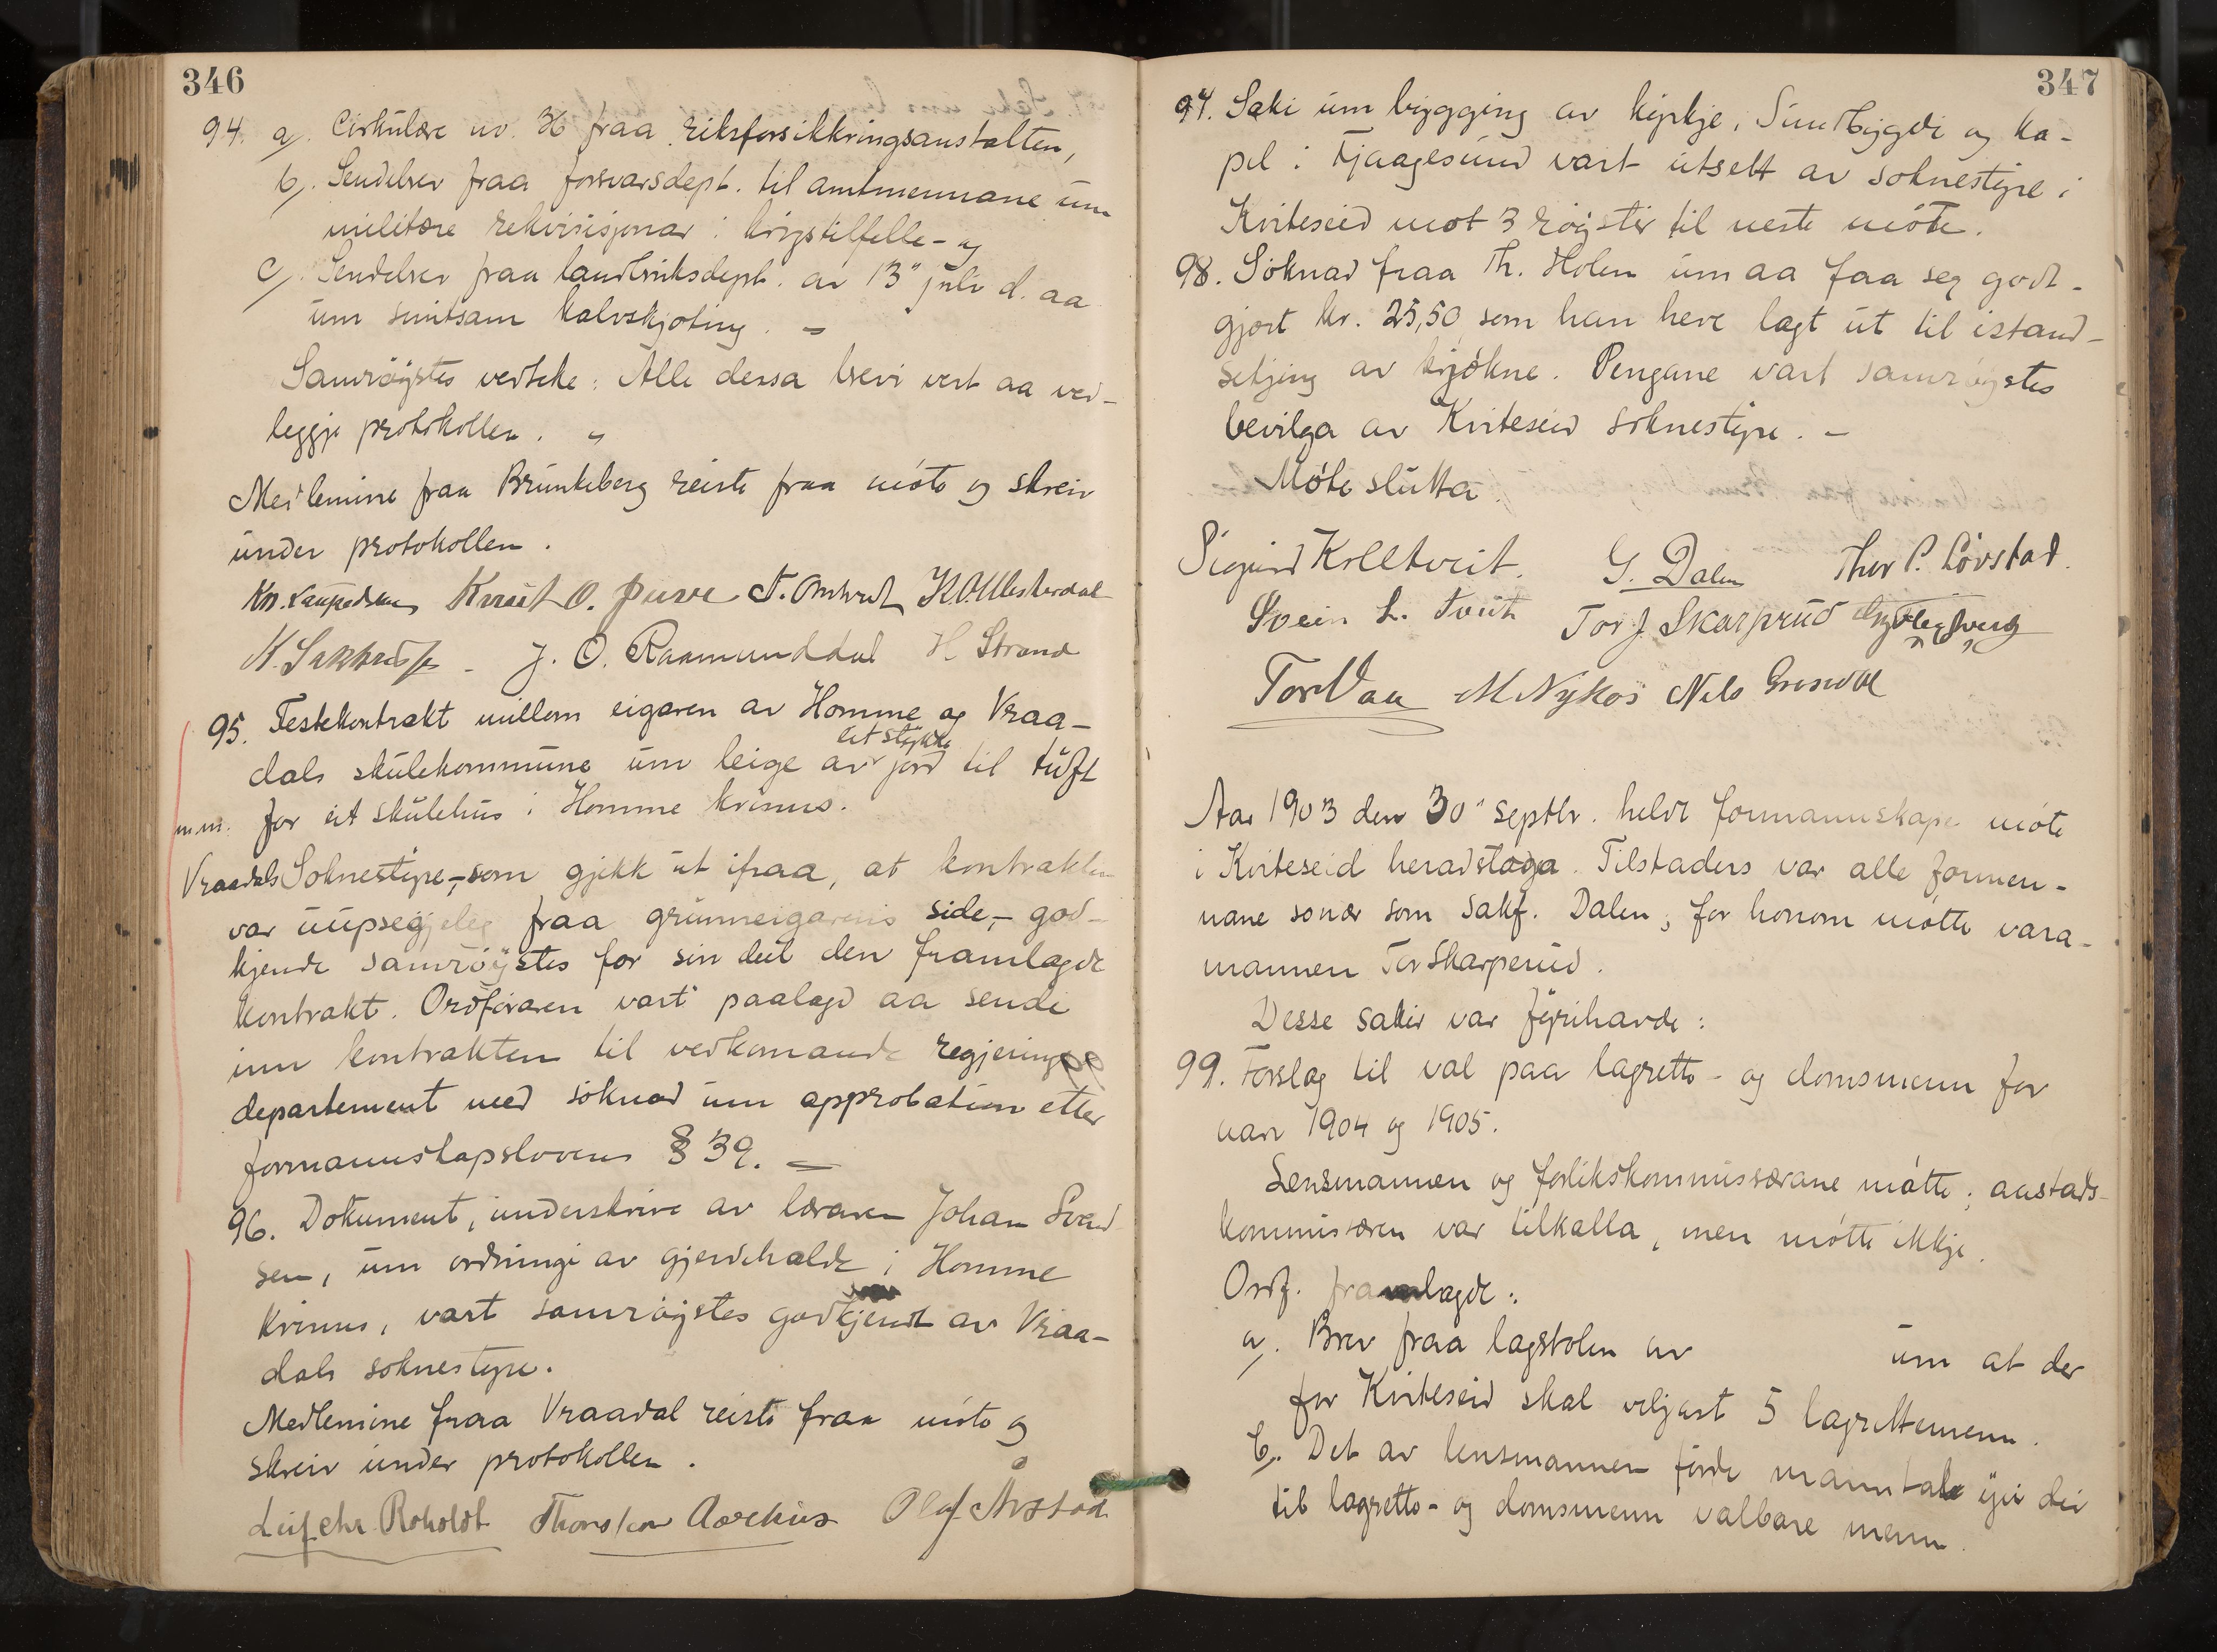 346
94. a/. Cirkulære no. 36 fraa riksforsikkringsanstalten,
b/. Sendelser fraa forsvarsdept. til amtmennane um
militære rekvisisjonar i krigstilfelle - og
c/. Sendelser fraa landbruksdept. av 13" juli d. aa
um smitsam kalvskjoting. -
Samrøystes vedteke: Alle dessa brevi vert aa ved-
leggje protokollen. -
Medlemine fraa Brunkeberg reiste fraa møte og skreiv
under protokollen.
Knut O. Juve
J. O. Raamunddal H Strand
95. Festekontrakt millom eigaren av Homme og Vraa-
eit stykke
dals skulekommune um leige av jord til tuft
m.m. for eit skulehus i Homme krinns.
Vraadals Soknestyre, - som gjekk ut ifraa, at kontrakten
var uupsegjeleg fraa grunneigarens side, - god-
kjende samrøystes for sin deil den framlagde
kontrakt. Ordføraren vart paalagd aa sende
inn kontrakten til vedkomande regjerings
departement med søknad um approbation etter
formannskapslovens § 39. -
96. Dokument, underskrive av læraren Johan Svend-
sen, um ordningi av gjerdehalde i Homme
krinns, vart samrøystes godkjendt av Vraa-
dals soknestyre.
Medlemine fraa Vraadal reiste fraa møte og
skreiv under protokollen.
Leif Chr. Roholdt Thorstein Aarhus Olaf Århstad
347
97. Saki um bygging av kyrkje i Sundbygdi og ka-
pel i Fjaagesund vart utsett av soknestyre i
Kviteseid mot 3 røyster til neste møte.
98. Søknad fraa Th. Holen um aa faa seg godt-
gjort kr. 25,50 som han heve lagt ut til istand-
setjing av kjøkne. Pengane vart samrøystes
bevilga av Kviteseid soknestyre. -
Møte slutta.
Sigurd Kolltveit. G. Dalen Thor P. Løvstad.
Svein L. Tveit Tor J. Skarprud
Tor Vaa M Nykos Nils
Aar 1903 den 30" septbr. heldt formannskape møte
i Kviteseid heradstoga. Tilstaders var alle formen-
nane sonær som sakf. Dalen; for honom møtte vara-
mannen Tor Skarperud.
Desse sakir var fyrihavde:
99. Forslag til val paa lagretts- og domsmenn for
aari 1904 og 1905.
Lensmannen og forlikskommissærane møtte; anstads-
kommisæren var tilkalla, men møtte ikkje.
Ordf. framlagde:
a/. Brev fraa lagstolen av um at der
for Kviteseid skal veljast 5 lagrettemenn.
b/. Det av lensmannen førde manntale yvi dei
til lagretts- og domsmenn valbare menn.